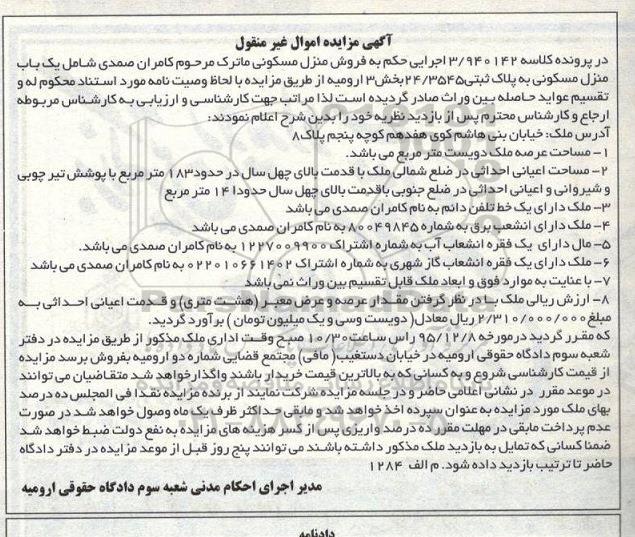 آگهی مزایده اموال غیر منقول
در پرونده کلاسه ۳/۹۴۰۱۴۲ اجرایی حکم به فروش منزل مسکونی ماترک مرحوم کامران صمدی شامل یک باب
منزل مسکونی به پلاک ثبتی۲۴/۳۵۴۵بخش۳ ارومیه از طریق مزایده با لحاظ وصیت نامه مورد استناد محکوم له و
تقسیم عواید حاصله بین وراث صادر گردیده است لذا مراتب جهت کارشناسی و ارزیابی به کارشناس مربوطه
ارجاع و کارشناس محترم پس از بازدید نظریه خود را بدین شرح اعلام نمودند:
آدرس ملک: خیابان بنی هاشم کوی هفدهم کوچه پنجم پلاک۸
۱- مساحت عرصه ملک دویست متر مربع می باشد.
۲- مساحت اعیانی احداثی در ضلع شمالی ملک با قدمت بالای چهل سال در حدود۱۸۳ متر مربع با پوشش تیر چوبی
و شیروانی و اعیانی احداثی در ضلع جنوبی باقدمت بالای چهل سال حدودا ۱۴ متر مربع
۳- ملک دارای یک خط تلفن دائم به نام کامران صمدی می باشد
۴- ملک دارای انشعب برق به شماره ۸۰۰۴۹۸۴۵ به نام کامران صمدی می باشد
۵- مال دارای یک فقره انشعاب آب به شماره اشتراک ۱۲۲۷۰۰۹۹۰۰ به نام کامران صمدی می باشد.
۶- ملک دارای یک فقره انشعاب گاز شهری به شماره اشتراک ۰۲۲۰۱۰۶۶۱۴۰۲ به نام کامران صمدی می باشد
۷- با عنایت به موارد فوق و ابعاد ملک قابل تقسیم بین وراث نمی باشد
۸- ارزش ریالی ملک با در نظر گرفتن مقدار عرصه و عرض معبر (هشت متری) و قدمت اعیانی احداثی به
مبلغ۲/۳۱۰/۰۰۰/۰۰۰ ریال معادل( دویست وسی و یک میلیون تومان ) برآورد گردید.
که مقرر گردید درمورخه ۹۵/۱۲/۸ راس ساعت۱۰/۳۰ صبح وقت اداری ملک مذکور از طریق مزایده در دفتر
شعبه سوم دادگاه حقوقی ارومیه در خیابان دستغیب( مافی) مجتمع قضایی شماره دو ارومیه بفروش برسد مزایده
از قیمت کارشناسی شروع و به کسانی که به بالاترین قیمت خریدار باشند واگذار خواهد شد متقاضیان می توانند
در موعد مقرر در نشانی اعلامی حاضر و در جلسه مزایده شرکت نمایند از برنده مزایده نقدا فی المجلس ده درصد
بهای ملک مورد مزایده به عنوان سپرده اخذ خواهد شد و مابقی حداکثر ظرف یک ماه وصول خواهد شد در صورت
عدم پرداخت مابقی در مهلت مقرر ده درصد واریزی پس از کسر هزینه های مزایده به نفع دولت ضبط خواهد شد
ضمنا کسانی که تمایل به بازدید ملک مذکور داشته باشند می توانند پنج روز قبل از موعد مزایده در دفتر دادگاه
حاضر تا ترتیب بازدید داده شود. م الف ۱۲۸۴
مدیر اجرای احکام مدنی شعبه سوم دادگاه حقوقی ارومیه
دادنامه